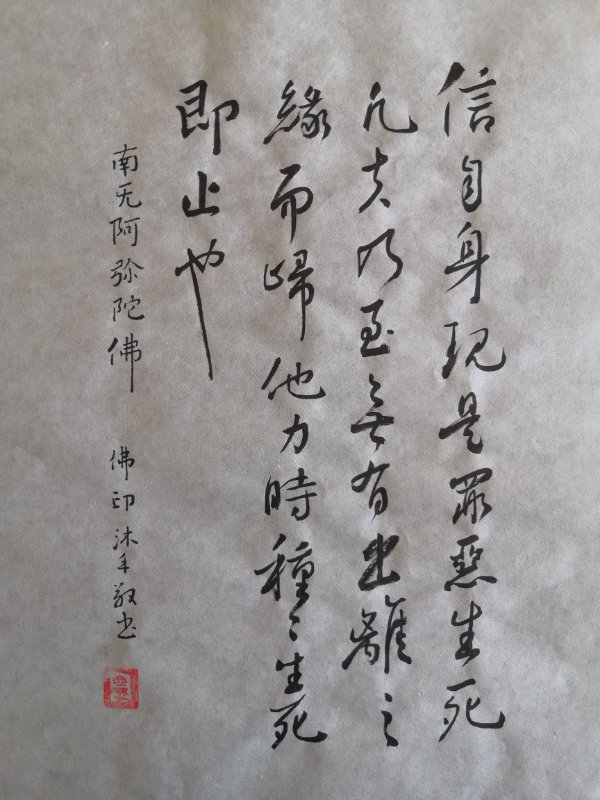 信自身現是罪惡生死
凡夫乃至無有出離之
緣而歸他力時種種生死
即止也
南无阿弥陀佛
佛印沐手敬书